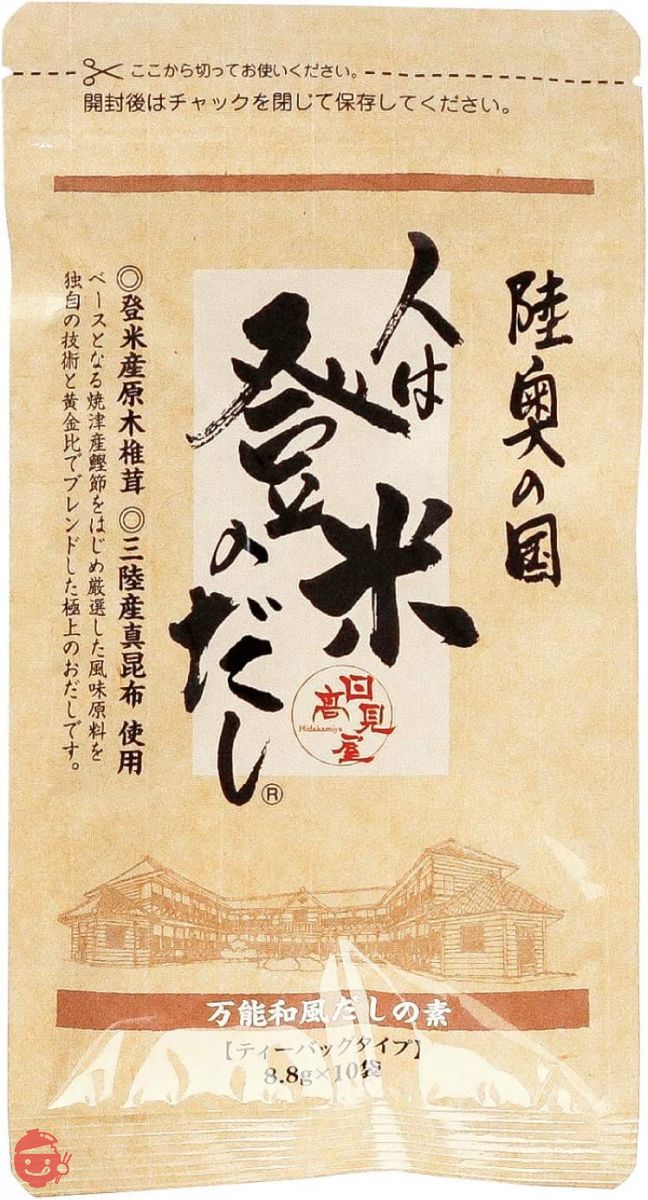 ここから切ってお使いください。
開封後はチャックを閉じて保存してください。
陸奥の国
人は
登米
のだし
®
日高見屋
Hidakamiya
◎登米産原木椎茸 ◎三陸産真昆布 使用
ベースとなる焼津産鰹節をはじめ厳選した風味原料を
独自の技術と黄金比でブレンドした極上のおだしです。
万能和風だしの素
【ティーバッグタイプ】
8.8g×10袋